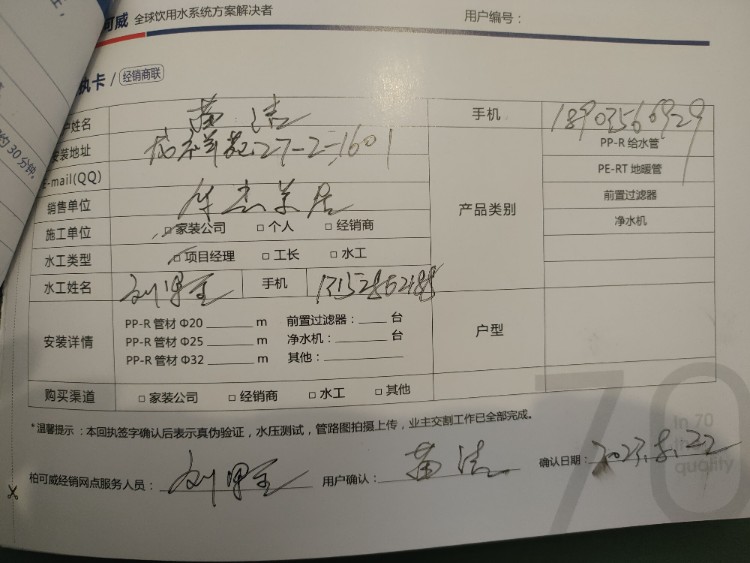 可威 全球饮用水系统方案解决者
用户编号：
执卡 / 经销商联
户姓名 黄洁 手机 18903560929
安装地址 27-2-1601 PP-R 给水管
E-mail(QQ) PE-RT 地暖管
销售单位 华杰美居 产品类别 前置过滤器
施工单位 □ 家装公司 □ 个人 □ 经销商 净水机
水工类型 □ 项目经理 □ 工长 □ 水工
水工姓名 手机
安装详情 PP-R 管材 Φ20 ______ m 前置过滤器：____ 台 户型
PP-R 管材 Φ25 ______ m 净水机：____ 台
PP-R 管材 Φ32 ______ m 其他：______
购买渠道 □ 家装公司 □ 经销商 □ 水工 □ 其他
*温馨提示：本回执签字确认后表示真伪验证，水压测试，管路图拍摄上传，业主交割工作已全部完成。
柏可威经销网点服务人员： 用户确认：黄洁 确认日期：2023.8.22
约 30 分钟，
70
In 70
quality